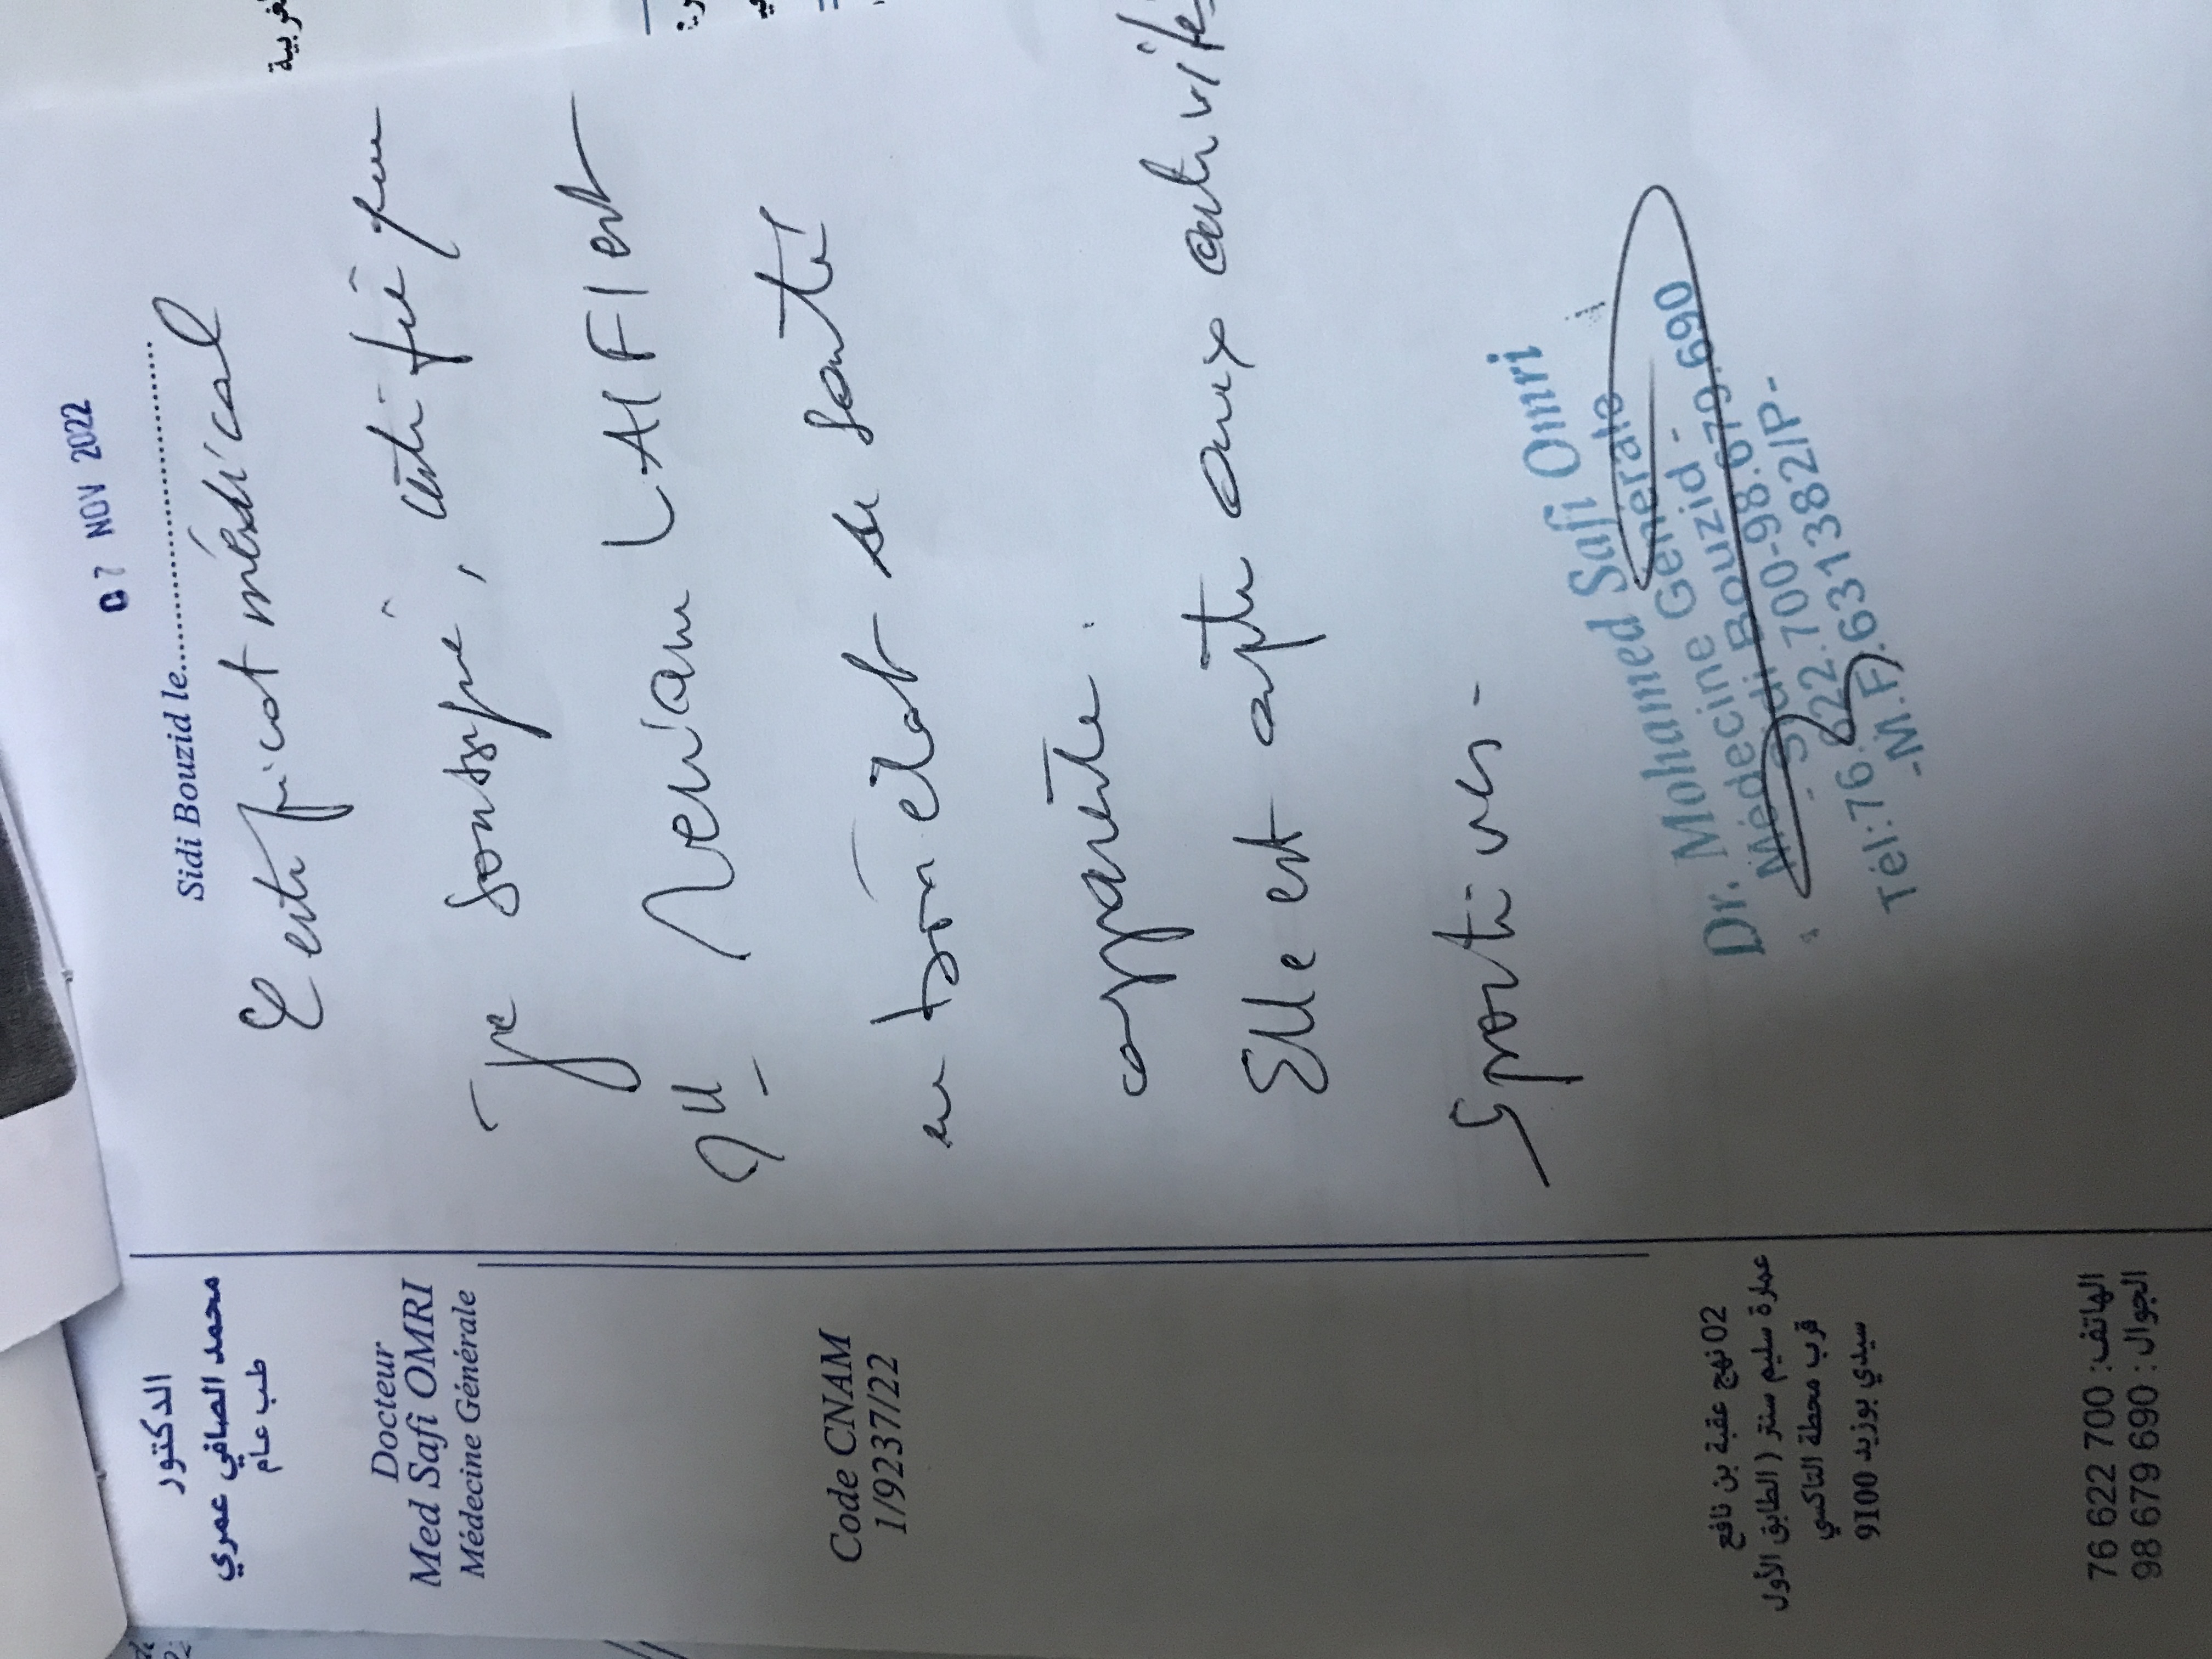 الدكتور
محمد الصافي عمري
طب عام
Docteur
Med Safi OMRI
Médecine Générale
Code CNAM
1/9237/22
02 نهج عقبة بن نافع
عمارة سليم سنتر (الطابق الأول
قرب محطة التاكسي
سيدي بوزيد 9100
الهاتف: 76 622 700
الجوال: 98 679 690
07 NOV 2022
Sidi Bouzid le
Certificat médical
Je soussigné, certifie que
LAIFI est
en bon état de santé
apparente.
Elle est apte aux activités
sportives-
Dr. Mohamed Safi Omri
Médecine Générale
- Sidi Bouzid -
Tél:76.622.700-98.679.690
-M.F:.631382/P-